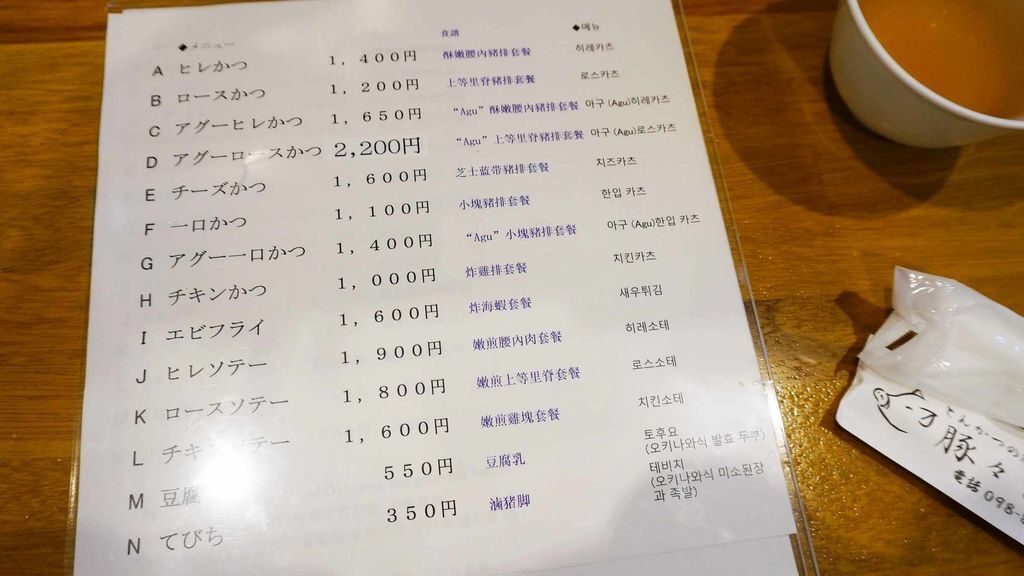 ◆メニュー 食譜 ◆메뉴
A ヒレかつ 1,400円 酥嫩腰內豬排套餐 히레카츠
B ロースかつ 1,200円 上等里脊豬排套餐 로스카츠
C アグーヒレかつ 1,650円 “Agu” 酥嫩腰內豬排套餐 아구 (Agu)히레카츠
D アグーロースかつ 2,200円 “Agu” 上等里脊豬排套餐 아구 (Agu)로스카츠
E チーズかつ 1,600円 芝士蓝带豬排套餐 치즈카츠
F 一口かつ 1,100円 小塊豬排套餐 한입 카츠
G アグー一口かつ 1,400円 “Agu” 小塊豬排套餐 아구 (Agu)한입 카츠
H チキンかつ 1,000円 炸雞排套餐 치킨카츠
I エビフライ 1,600円 炸海蝦套餐 새우튀김
J ヒレソテー 1,900円 嫩煎腰內肉套餐 히레소테
K ロースソテー 1,800円 嫩煎上等里脊套餐 로스소테
L チキンソテー 1,600円 嫩煎雞塊套餐 치킨소테
M 豆腐 550円 豆腐乳 토후요
(오키나와식 발효 두부)
N てびち 350円 滷猪脚 테비치
(오키나와식 미소된장
과 족발)
とんかつの
豚々
電話 098-